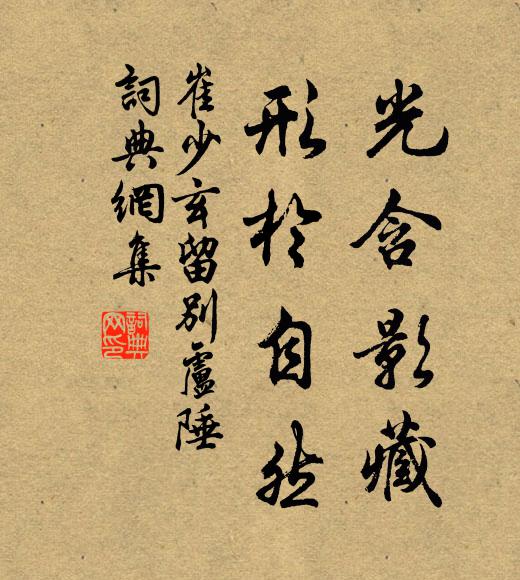 光含影藏
形於自然
崔少玄留別盧陲
詞典網集
詞典
网印